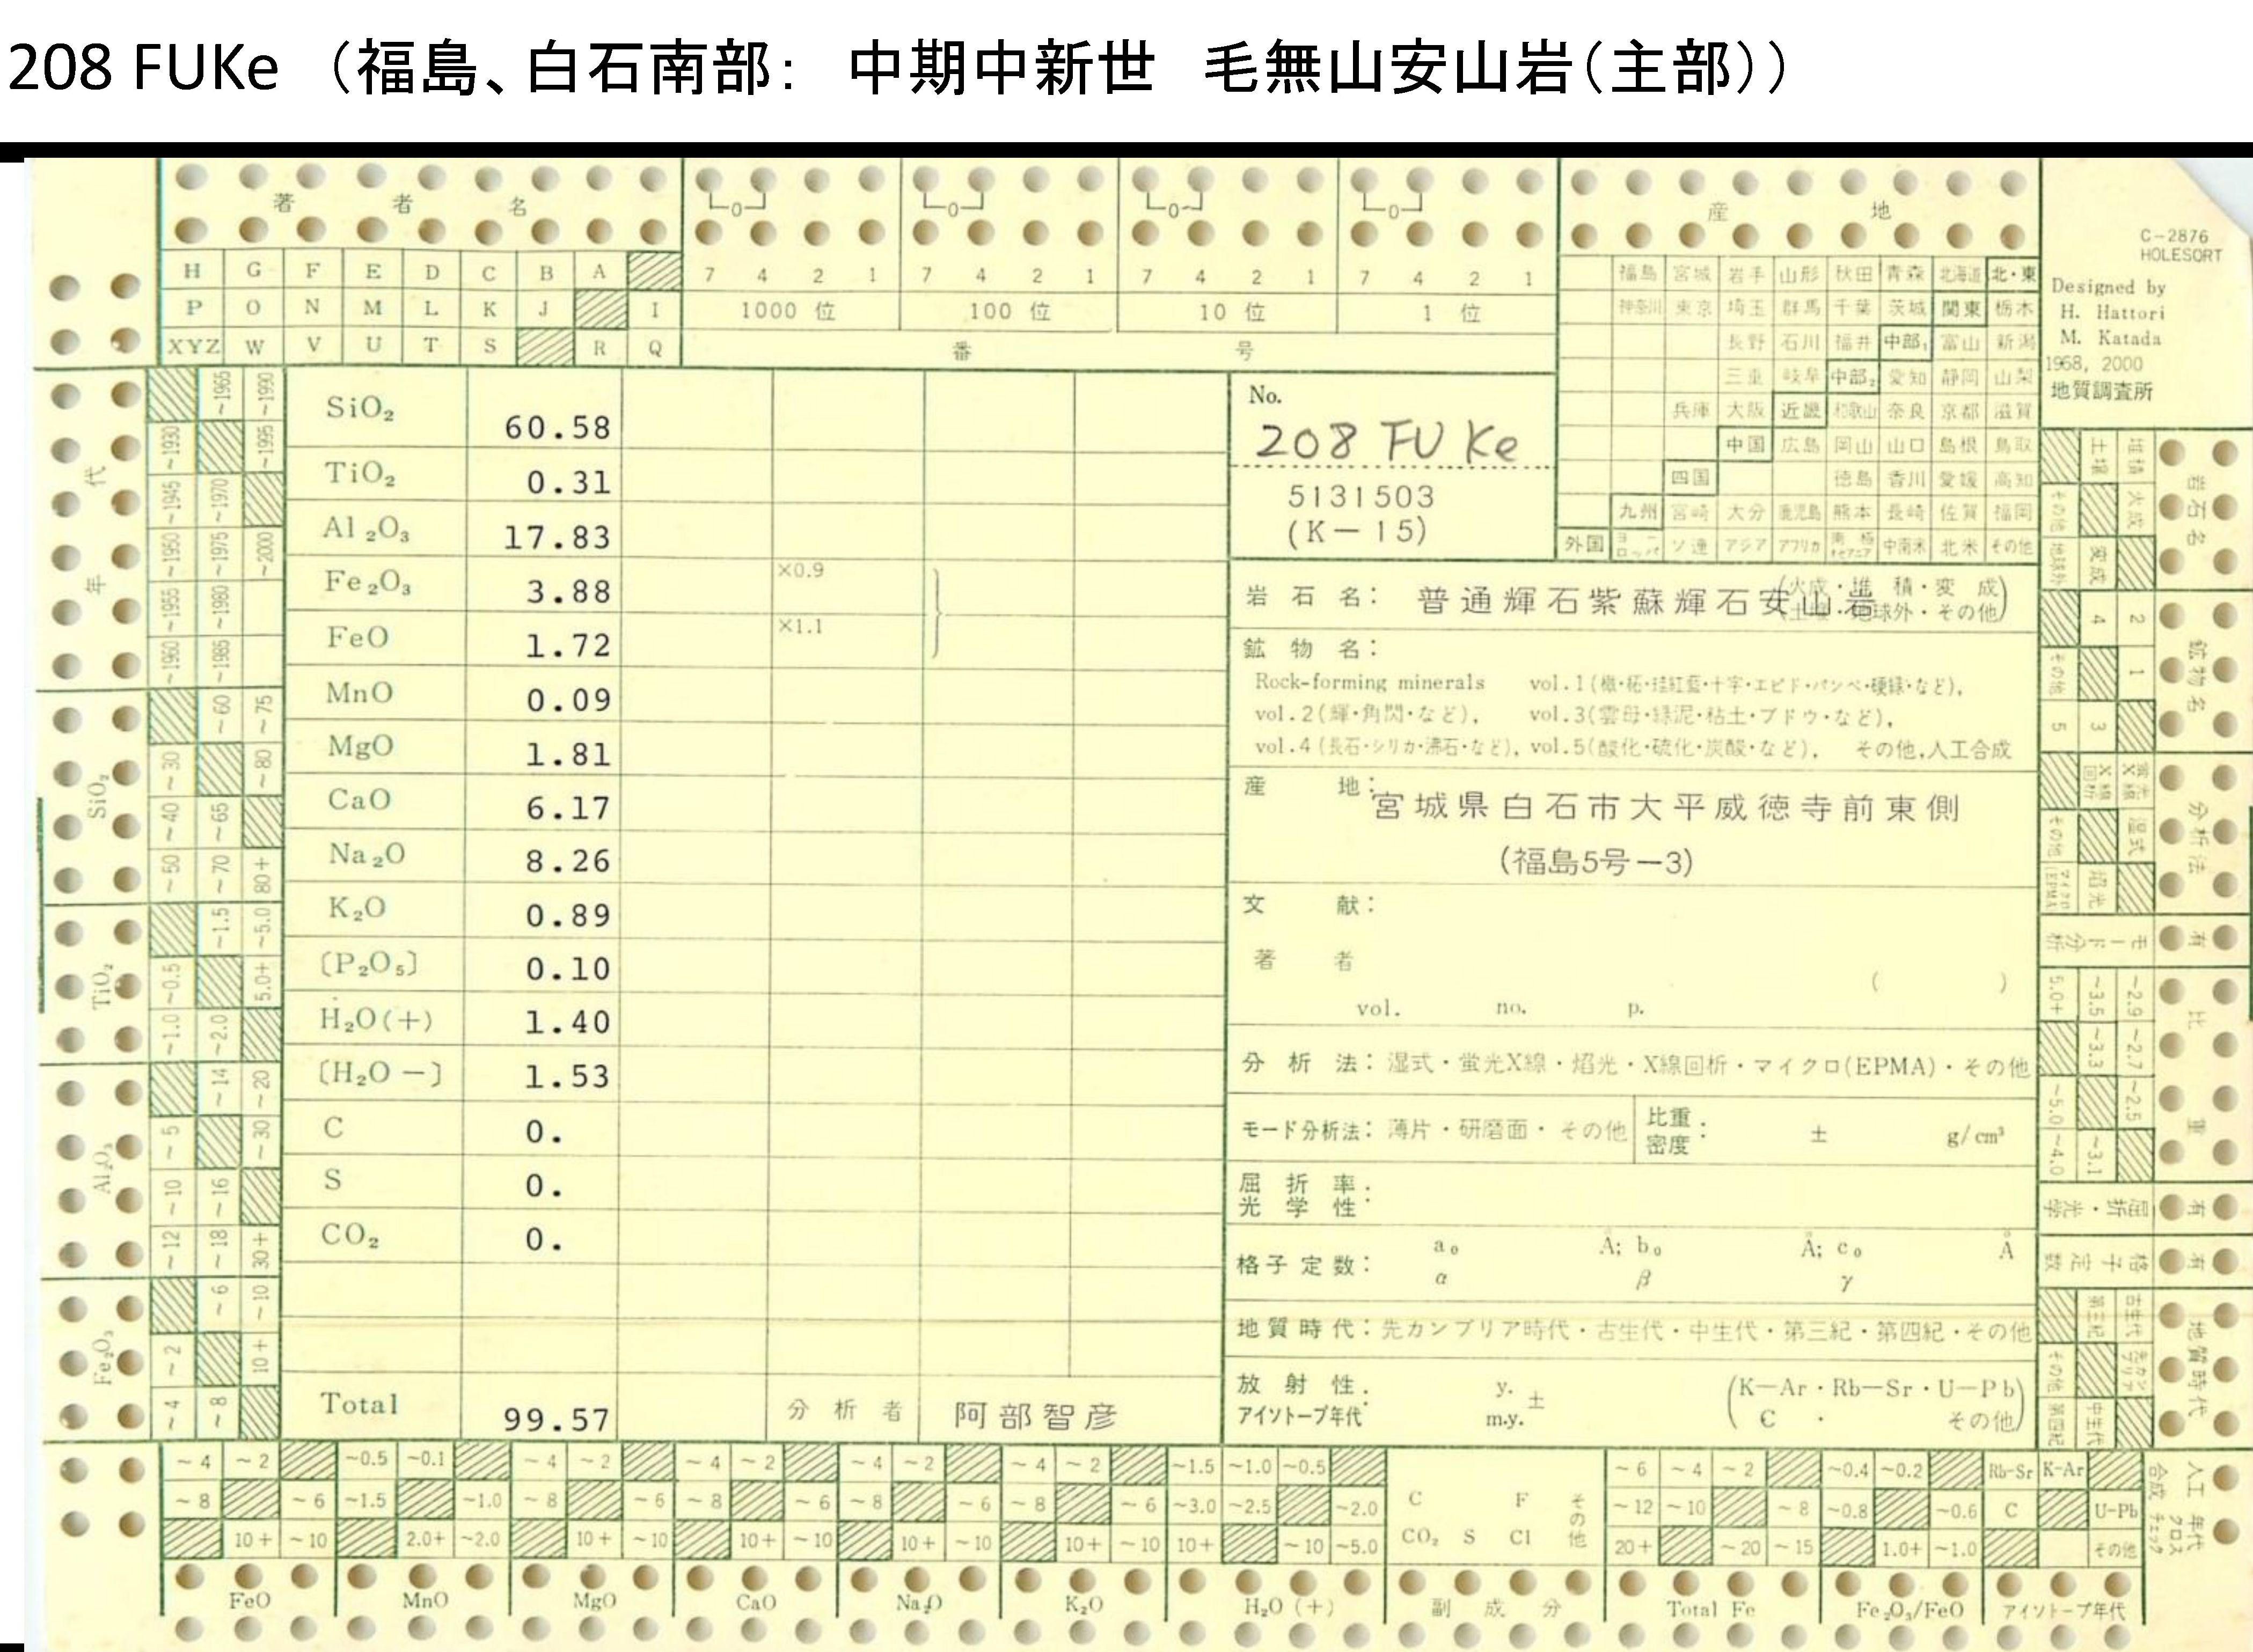 208 FUKe （福島、白石南部： 中期中新世 毛無山安山岩（主部））
著 者 名
H G F E D C B A
P O N M L K J I
XYZ W V U T S R Q
0 0 0 0
7 4 2 1 7 4 2 1 7 4 2 1 7 4 2 1
1000 位 100 位 10 位 1 位
番 号
産 地
福島 宮城 岩手 山形 秋田 青森 北海道 北・東
神奈川 東京 埼玉 群馬 千葉 茨城 関東 栃木
長野 石川 福井 中部₁ 富山 新潟
三重 岐阜 中部₂ 愛知 静岡 山梨
兵庫 大阪 近畿 和歌山 奈良 京都 滋賀
中国 広島 岡山 山口 島根 鳥取
四国 徳島 香川 愛媛 高知
九州 宮崎 大分 鹿児島 熊本 長崎 佐賀 福岡
外国 ヨーロッパ ソ連 アジア アフリカ 中南米 北米 その他
C-2876
HOLESORT
Designed by
H. Hattori
M. Katada
1968, 2000
地質調査所
No.
208 FU Ke
5131503
(K-15)
SiO₂ 60.58
TiO₂ 0.31
Al₂O₃ 17.83
Fe₂O₃ 3.88 ×0.9
FeO 1.72 ×1.1
MnO 0.09
MgO 1.81
CaO 6.17
Na₂O 8.26
K₂O 0.89
〔P₂O₅〕 0.10
H₂O(+) 1.40
〔H₂O −〕 1.53
C 0.
S 0.
CO₂ 0.
Total 99.57 分析者 阿部智彦
岩石名： 普通輝石紫蘇輝石安山岩
(火成・堆積・変成
土壌・地球外・その他)
鉱物名：
Rock-forming minerals vol.1(橄・柘・珪紅藍・十字・エピド・パンペ・硬緑・など),
vol.2(輝・角閃・など), vol.3(雲母・緑泥・粘土・ブドウ・など),
vol.4(長石・シリカ・沸石・など), vol.5(酸化・硫化・炭酸・など), その他,人工合成
産 地： 宮城県白石市大平威徳寺前東側
(福島5号−3)
文 献：
著 者
( )
vol. no. p.
分析法：湿式・蛍光X線・焰光・X線回析・マイクロ(EPMA)・その他
モード分析法：薄片・研磨面・その他 比重密度： ± g/cm³
屈折率
光学性：
格子定数： a₀ Å; b₀ Å; c₀ Å
α β γ
地質時代：先カンブリア時代・古生代・中生代・第三紀・第四紀・その他
放射性
アイソトープ年代： y. m.y. ± (K−Ar・Rb−Sr・U−Pb
C ・ その他)
年代
~1965 ~1990
~1930 ~1995
~1945 ~1970
~1950 ~1975 ~2000
~1955 ~1980
~1960 ~1985
SiO₂
~60 ~75
~30 ~80
~40 ~65
~50 ~70 80+
TiO₂
~1.5 ~5.0
~0.5 5.0+
~1.0 ~2.0
Al₂O₃
~14 ~20
~5 ~30
~10 ~16
~12 ~18 30+
Fe₂O₃
~6 ~10
~2 10+
~4 ~8
岩石名
土壌 堆積
その他 火成
地球外 変成
鉱物名
4 2
その他 1
5 3
分析法
X線回析 蛍光X線
その他 湿式
マイクロ(EPMA) 焰光
モード分析 有
比重
5.0+ ~3.5 ~2.9
~3.3 ~2.7
~5.0 ~2.5
~4.0 ~3.1
屈折・光学 有
格子定数 有
地質時代
第三紀 古生代
その他 先カンブリア
第四紀 中生代
~4 ~2 ~0.5 ~0.1 ~4 ~2 ~4 ~2 ~4 ~2 ~4 ~2 ~1.5 ~1.0 ~0.5 ~6 ~4 ~2 ~0.4 ~0.2 Rb-Sr K-Ar
~8 ~6 ~1.5 ~1.0 ~8 ~6 ~8 ~6 ~8 ~6 ~8 ~6 ~3.0 ~2.5 ~2.0 C F その他 ~12 ~10 ~8 ~0.8 ~0.6 C U-Pb
10+ ~10 2.0+ ~2.0 10+ ~10 10+ ~10 10+ ~10 10+ ~10 10+ ~10 ~5.0 CO₂ S Cl 20+ ~20 ~15 1.0+ ~1.0 その他
人工合成 年代クロスチェック
FeO MnO MgO CaO Na₂O K₂O H₂O (+) 副成分 Total Fe Fe₂O₃/FeO アイソトープ年代